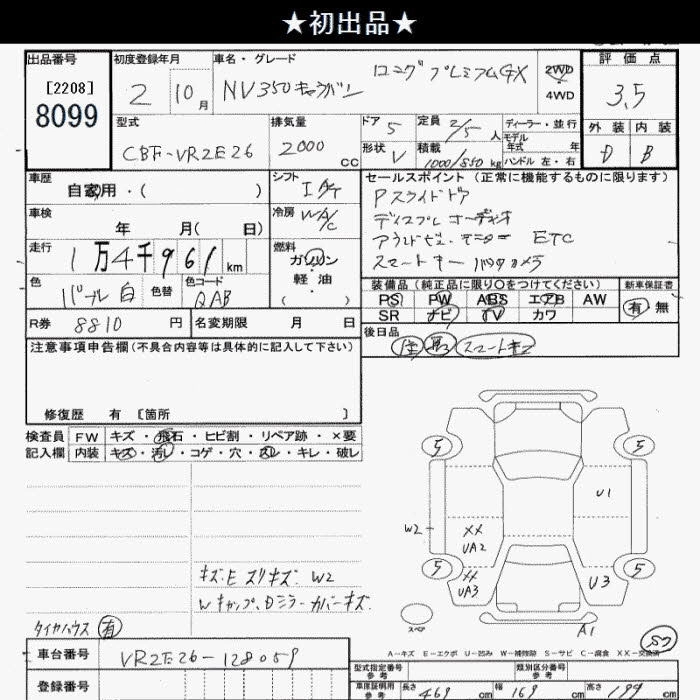 ★初出品★
出品番号 初度登録年月 車名・グレード 評価点
[2208]
8099
2 10月 NV350キャラバン ロングプレミアムGX 2WD 4WD 3.5
型式 排気量 ドア 5 定員 2/5人 ディーラー・並行 外装 内装
CBF-VR2E26 2000cc 形状 V 積載 1000/850kg モデル年式 年 ハンドル 左・右 D B
車歴 シフト セールスポイント (正常に機能するものに限ります)
自家用・( ) IAT Pスライドドア
車検 冷房 W A/C ディスプレイオーディオ
年 月( 日) アラウンドビューモニター ETC
走行 1万4千961km 燃料 ガソリン・軽油・( ) スマートキー バックカメラ
色 パール白 色替 色コード QAB
装備品 (純正品に限り○をつけてください) 新車保証書
PS PW ABS エアB AW 有・無
SR ナビ TV カワ
R券 8810円 名変期限 月 日
後日品
スマートキー
注意事項申告欄(不具合内容等は具体的に記入して下さい)
修復歴 有 [箇所 ]
検査員記入欄 FW キズ・飛石・ヒビ割・リペア跡・×要
内装 キズ・汚レ・コゲ・穴・スレ・キレ・破レ
5 5
U1
W2 XX UA2
5 5
XX UA3 U3
キズE スリキズ W2
Wキャップ、Dミラーカバーキズ
スペア A1
タイヤハウス 有
A-キズ E-エクボ U-凹み W-補修跡 S-サビ C-腐食 XX-交換済
車台番号 VR2E26-128059
型式指定番号 参考 類別区分番号 参考
登録番号
車庫証明用 参考 長さ 469cm 幅 169cm 高さ 199cm